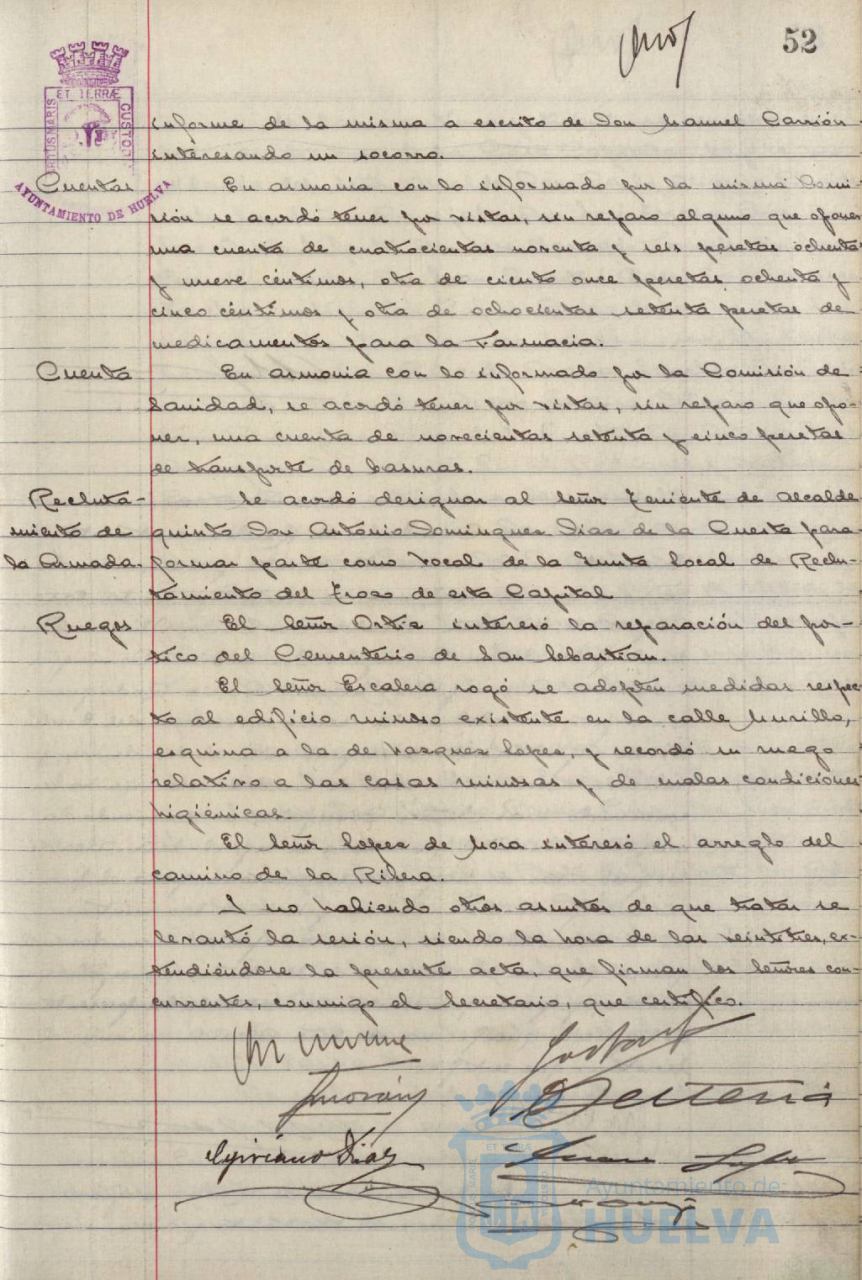 52
ET TERRÆ
PORTUS MARIS
CUSTODIA
AYUNTAMIENTO DE HUELVA
informe de la misma a escrito de Don Manuel Carrión
interesando un socorro.
Cuentas
En armonía con lo informado por la misma Comi-
sión se acordó tener por vistas, sin reparo alguno que oponer
una cuenta de cuatrocientas noventa y seis pesetas ochenta
y nueve céntimos, otra de ciento once pesetas ochenta y
cinco céntimos y otra de ochocientas setenta pesetas de
medicamentos para la Farmacia.
Cuenta
En armonia con lo informado por la Comisión de
Sanidad, se acordó tener por vistas, sin reparo que opo-
ner, una cuenta de novecientas setenta y cinco pesetas
de transporte de basuras.
Recluta-
miento de
la Armada.
Se acordó designar al Señor Teniente de Alcalde
quinto Don Antonio Dominguez Diaz de la Cuesta para
formar parte como vocal de la Junta local de Reclu-
tamiento del Trozo de esta Capital
Ruegos
El Señor Ortiz interesó la reparación del pór-
tico del Cementerio de San Sebastian.
El Señor Escalera rogó se adopten medidas respec-
to al edificio ruinoso existente en la calle Murillo,
esquina a la de Vazquez Lopez, y recordó su ruego
relativo a las casas ruinosas y de malas condiciones
higiénicas.
El Señor Lopez de Mora interesó el arreglo del
camino de la Ribera.
Y no habiendo otros asuntos de que tratar se
levantó la sesión, siendo la hora de las veintitres, ex-
tendiéndose la presente acta, que firman los Señores con-
currentes, conmigo el Secretario, que certifico.
Cipriano Diaz
Ayuntamiento de
HUELVA